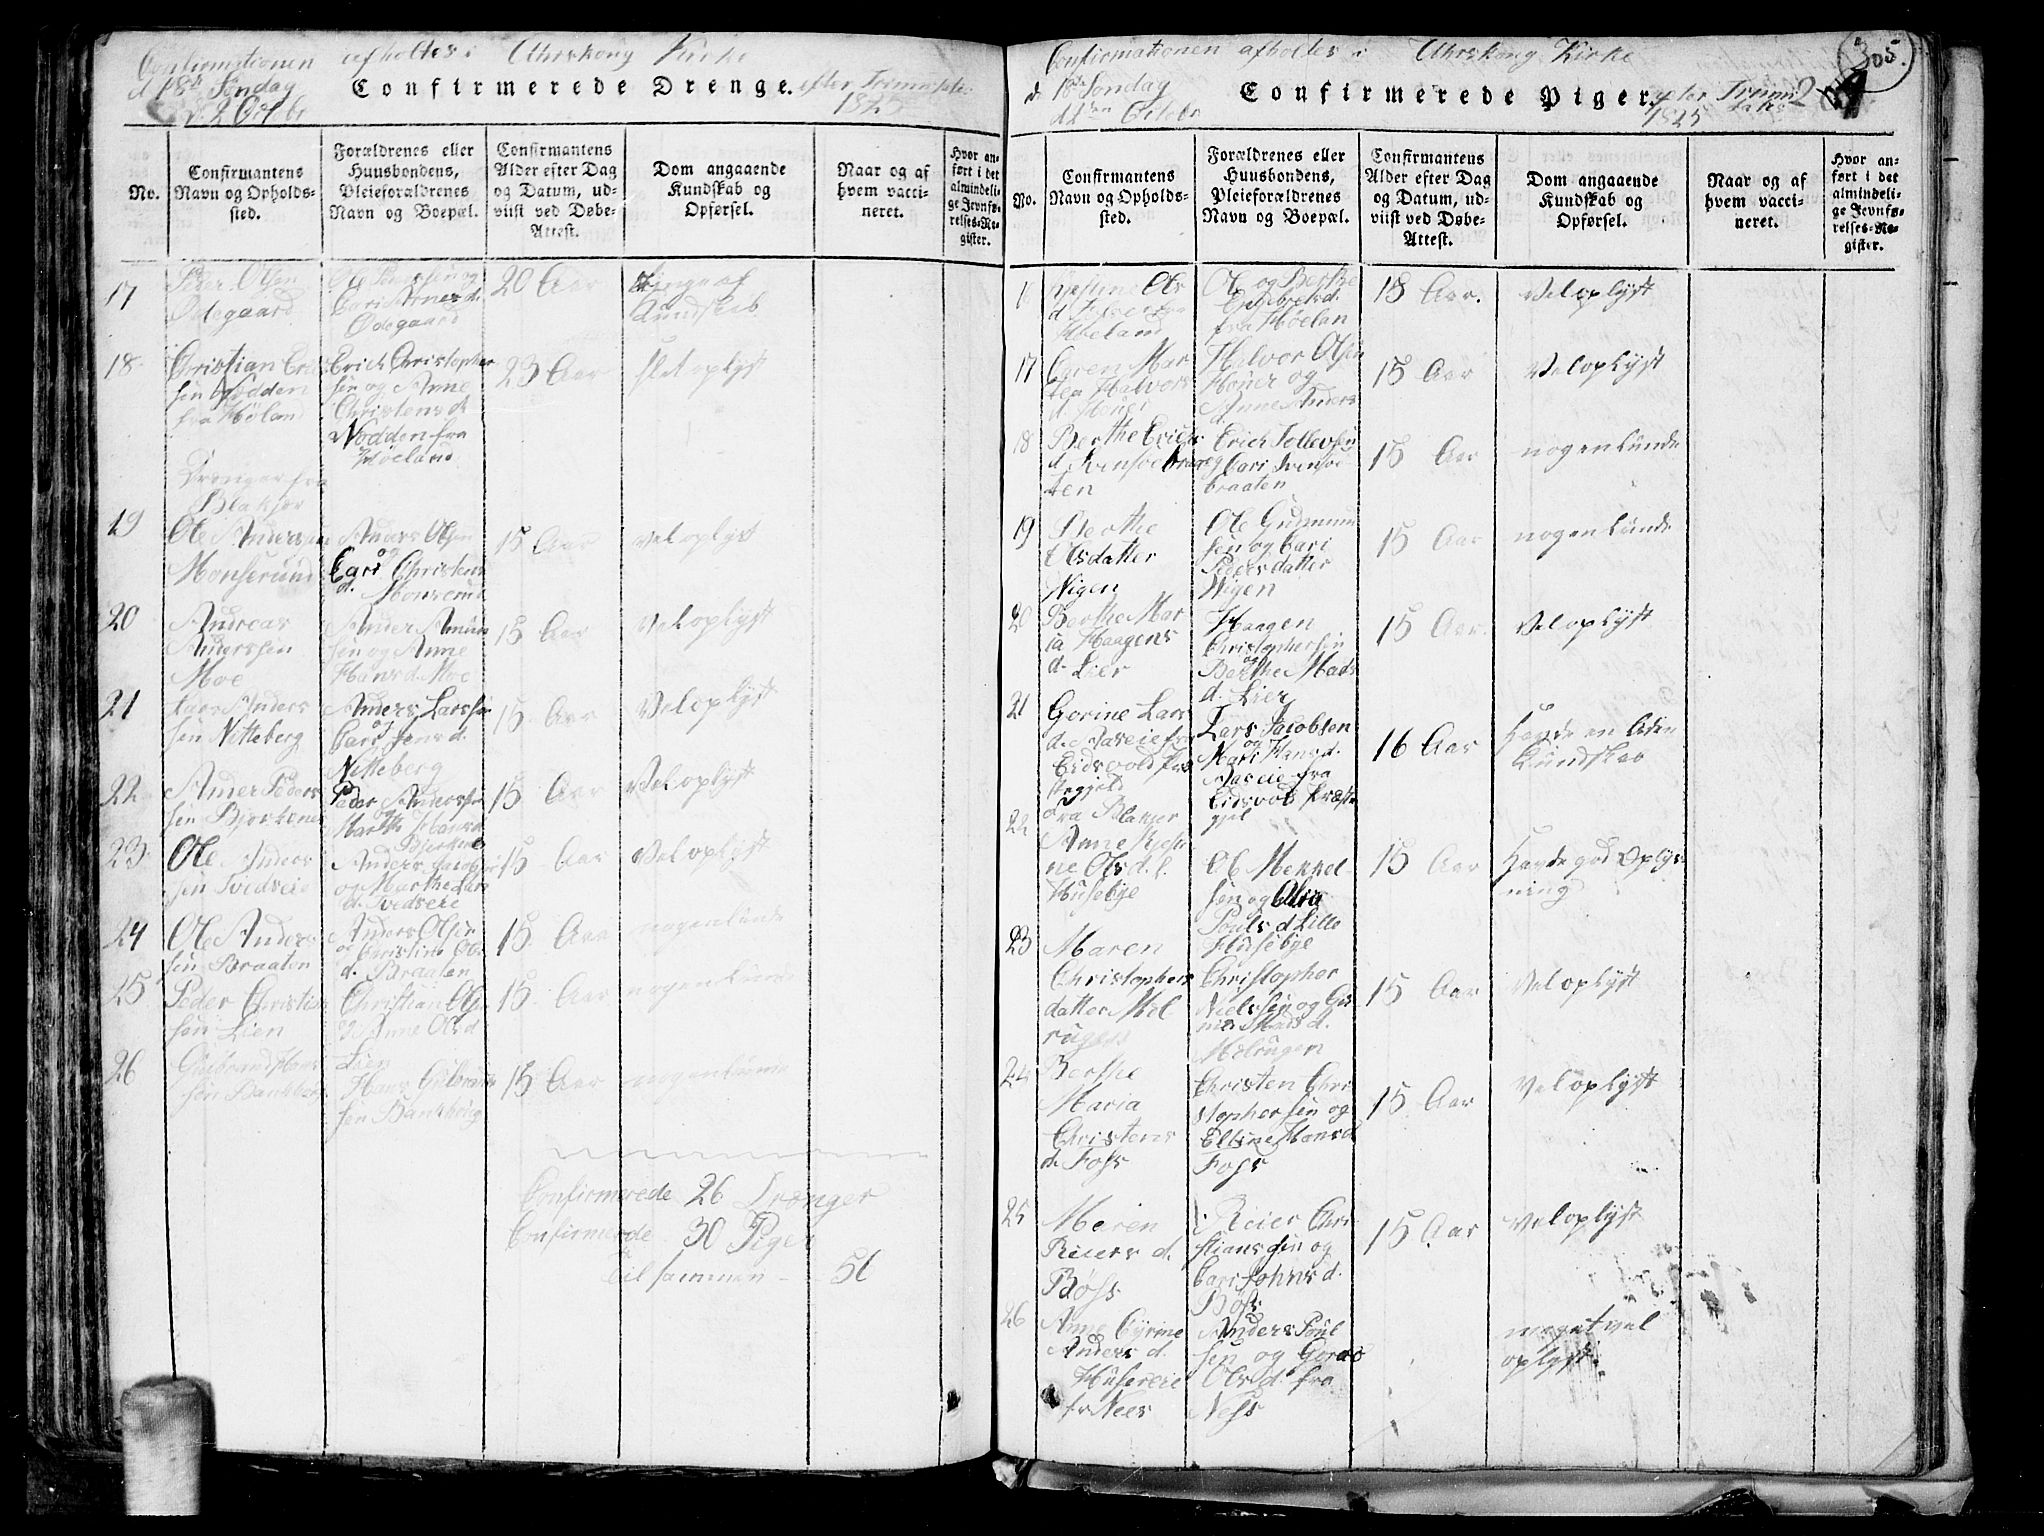 Confirmationen afholtes i Uhrskoug Kirke
d 18de Søndag efter Trinnitatis
d. 2 Octobr 1825
Confirmerede Drenge.
No.
Confirmantens
Navn og Opholds-
sted.
Forældrenes eller
Huusbondens,
Pleieforældrenes
Navn og Boepæl.
Confirmantens
Alder efter Dag
og Datum, ud-
viist ved Døbe-
Attest.
Dom angaaende
Kundskab og
Opførsel.
Naar og af
hvem vacci-
neret.
Hvor an-
ført i det
almindeli-
ge Jevnfø-
relses-Re-
gister.
17
Peder Olsen
Ødegaard
Ødegaard
20 Aar
Kundskab
18
Christian Erich
sen Nødden
fra Høland
Erich Christopher
sen og Anne
Christens d.
Nødden fra
Høeland
23 Aar
slet oplyst
Drenger fra
Blakjer
19
Ole Anderssen
Monserund
Anders Olsen
og
Cari Christens
d. Monserud
15 Aar
vel oplyst
20
Andreas
Anderssen
Moe
Ander Amun
sen og Anne
Hans d. Moe
15 Aar
Vel oplyst
21
Lars Anders
sen Nitteberg
Anders Larssen
og
Cari Jens d.
Nitteberg
15 Aar
Vel oplyst
22
Ander Peders
sen Bjerkenes
Peder Anderssen
og
Marthe Hans d
Bjerkenes
15 Aar
Vel oplyst
23
Ole Anders
sen Tvedseie
Anders Jacobsen
og Marthe Lars
d. Tvedseie
15 Aar
Vel oplyst
24
Ole Anders
sen Braaten
Anders Olsen
og Christine Ols
d. Braaten
15 Aar
nogenlunde
25
Peder Christian
sen Lien
Christian Olsen
og Anne Ols d
Lien
15 Aar
nogenlunde
26
Gulbrand Hans
sen Bankborg
Hans Gulbrands
sen Bankborg
15 Aar
nogenlunde
Confirmerede 26 Drænger
Confirmerede 30 Piger
til sammen - - 56
Confirmationen afholtes i Uhrskoug Kirke
d. 18de Søndag efter Trinni
d 2den Octobr 1825 tatis
305.
2
Confirmerede Piger.
No.
Confirmantens
Navn og Opholds-
sted.
Forældrenes eller
Huusbondens,
Pleieforældrenes
Navn og Boepæl.
Confirmantens
Alder efter Dag
og Datum, ud-
viist ved Døbe-
Attest.
Dom angaaende
Kundskab og
Opførsel.
Naar og af
hvem vacci-
neret.
Hvor an-
ført i det
almindeli-
ge Jevnfø-
relses-Re-
gister.
16
Høeland
Ole og Berthe
fra Høelan
15 Aar.
Vel oplyst
17
Caren Mar
tea Halvors
d. Houer
Halvor Olsen
Houer og
Anne Anders
d
15 Aar
Vel oplyst
18
Berthe Erichs
d. Svensøebraa
ten
Erich Tollevsen
og Cari Svensøe
braaten
15 Aar
nogenlunde
19
Berthe
Olsdatter
Nigen
Ole Gudmun
sen og Cari
Pedersdatter
Nigen
15 Aar
nogenlunde
20
Berthe Mar
ia Haagens
d. Lier
Haagen
Christophersen
og
Berthe Mads
d. Lier
15 Aar
Vel oplyst
21
Gorine Lars
d. Aaseie fra
Eidsvold Præ
stegjeld
Lars Jacobsen
og
Mari Hans d.
Aaseie fra
Eidsvold Præste
gjel
16 Aar
Havde en liden
Kundskab
fra Blakjer
22
Anne Kjesti
ne Ols d. l.
Husebye
Ole Mekkel-
sen og Olia
Pouls d Lille
Husebye
15 Aar
Havde god Oplys
ning
23
Maren
Christophers
datter Mel
rugen
Christopher
Nielssen og Gu
nier Mads d.
Melrugen
15 Aar
Vel oplyst
24
Berthe
Maria
Christens
d. Foss
Christen Chri
stophersen og
Elline Hans d
Foss
15 Aar
Vel oplyst
25
Maren
Reiers d.
Böss
Reier Chri
stiansen og
Cari Johns d.
Böss
15 Aar
Vel oplyst
26
Anne Cyrine
Anders d.
Husereie
fr Nees
Anders Poul
sen og Goroe
Ols d. fra
Ness
meget vel
oplyst.